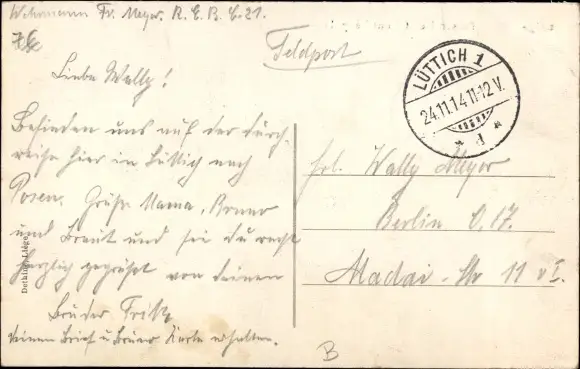 Wehrmann Fr. Meyer. R. E. B. 6. 21.
Feldpost
LÜTTICH 1
24.11.14.11-12V.
* d *
Liebe Wally!
Befinden uns auf der Durch-
reise hier in Lüttich nach
Posen. Grüße Mama, Bruno
und Braut und sei du recht
herzlich gegrüßt von deinem
Bruder Fritz
deinen Brief u Karte erhalten.
Frl. Wally Meyer
Berlin O, 17.
Madai-Str 11 v I.
B